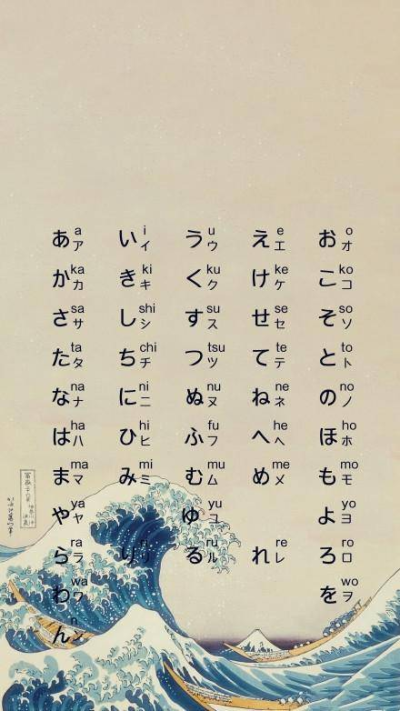 あ a ア い i イ う u ウ え e エ お o オ
か ka カ き ki キ く ku ク け ke ケ こ ko コ
さ sa サ し shi シ す su ス せ se セ そ so ソ
た ta タ ち chi チ つ tsu ツ て te テ と to ト
な na ナ に ni ニ ぬ nu ヌ ね ne ネ の no ノ
は ha ハ ひ hi ヒ ふ fu フ へ he ヘ ほ ho ホ
ま ma マ み mi ミ む mu ム め me メ も mo モ
や ya ヤ ゆ yu ユ よ yo ヨ
ら ra ラ り ri リ る ru ル れ re レ ろ ro ロ
わ wa ワ を wo ヲ
ん n ン